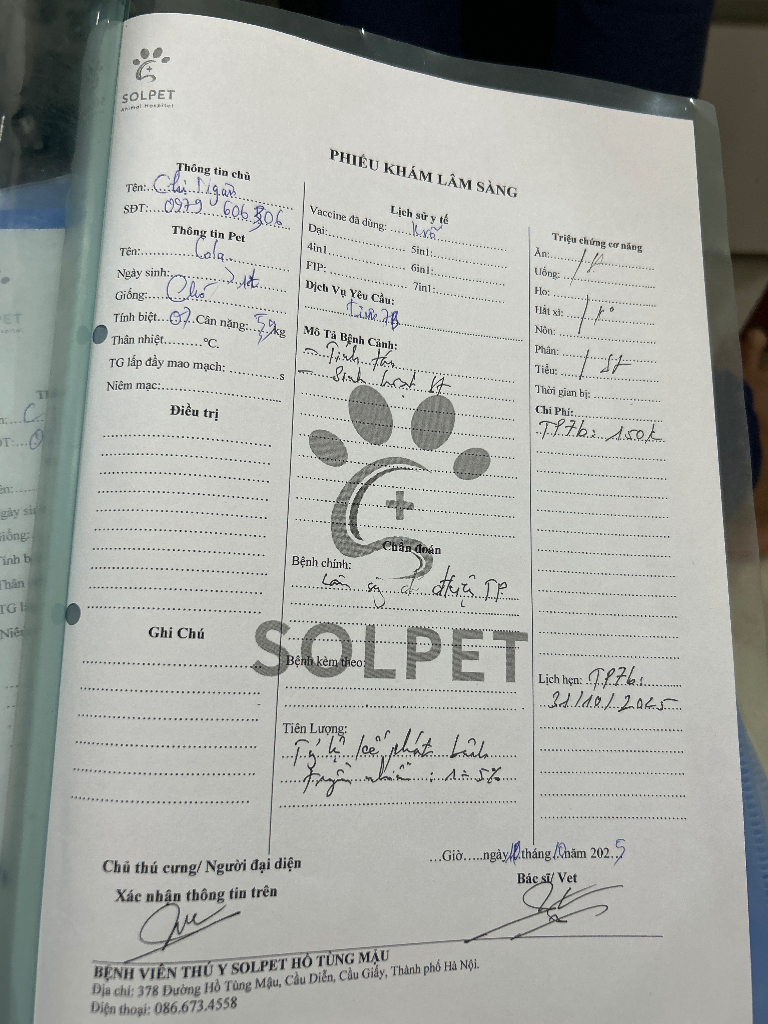 SOLPET
Animal Hospital
PHIẾU KHÁM LÂM SÀNG
Thông tin chủ
Tên: Chị Ngân
SĐT: 0979 606 806
Thông tin Pet
Tên: Cola
Ngày sinh: 2t
Giống: Chó
Tính biệt 07 Cân nặng: 5,9 kg
Thân nhiệt °C.
TG lấp đầy mao mạch: s
Niêm mạc:
Điều trị
Ghi Chú
Lịch sử y tế
Vaccine đã dùng:
Dại: 5in1:
4in1 6in1:
FIP: 7in1:
Dịch Vụ Yêu Cầu:
Tiêm 7B
Mô Tả Bệnh Cảnh:
- Tỉnh táo
- Sinh hoạt
Chẩn đoán
Bệnh chính:
Lâm sg đ điện TP
SOLPET
Bệnh kèm theo:
Tiên Lượng:
Tỷ lệ phát bệnh
truyền nhiễm: 1 - 5%
Triệu chứng cơ năng
Ăn:
Uống:
Ho:
Hắt xì:
Nôn:
Phân:
Tiểu:
Thời gian bị:
Chi Phí:
TP7b: 150k
Lịch hẹn: TP7b:
31/10/2025
Chủ thú cưng/ Người đại diện
Xác nhận thông tin trên
...Giờ.....ngày 10 tháng 10 năm 2025
Bác sĩ/ Vet
BỆNH VIÊN THÚ Y SOLPET HỒ TÙNG MẬU
Địa chỉ: 378 Đường Hồ Tùng Mậu, Cầu Diễn, Cầu Giấy, Thành phố Hà Nội.
Điện thoại: 086.673.4558